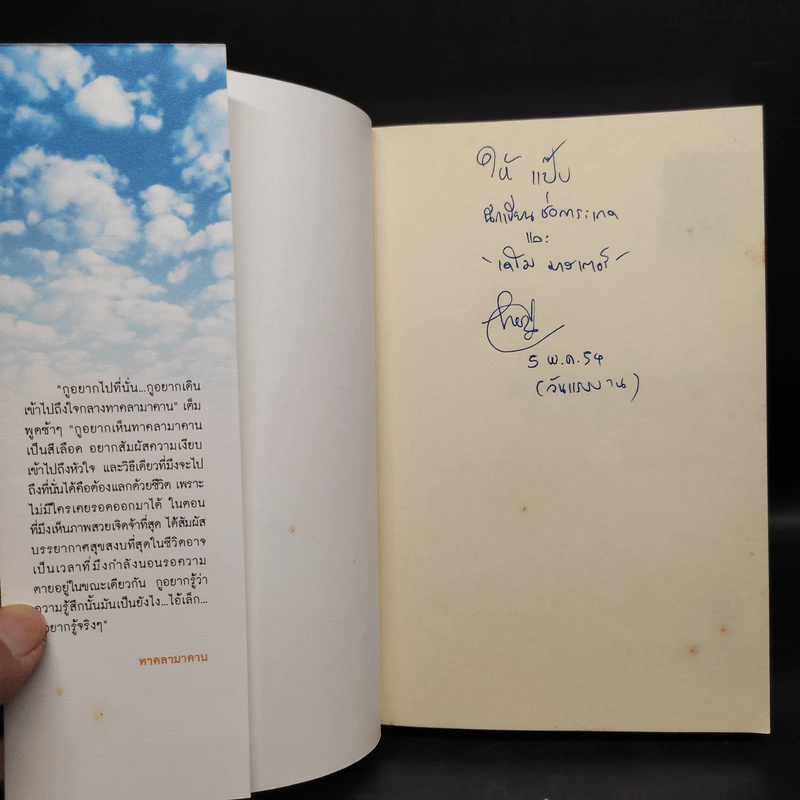 "กูอยากไปที่นั่น...กูอยากเดิน
เข้าไปถึงใจกลางทาคลามาคาน" เต็ม
พูดช้าๆ "กูอยากเห็นทาคลามาคาน
เป็นสีเลือด อยากสัมผัสความเงียบ
เข้าไปถึงหัวใจ และวิธีเดียวที่มึงจะไป
ถึงที่นั่นได้คือต้องแลกด้วยชีวิต เพราะ
ไม่มีใครเคยรอดออกมาได้ ในตอน
ที่มึงเห็นภาพสวยเจิดจ้าที่สุด ได้สัมผัส
บรรยากาศสุขสงบที่สุดในชีวิตอาจ
เป็นเวลาที่มึงกำลังนอนรอความ
ตายอยู่ในขณะเดียวกัน กูอยากรู้ว่า
ความรู้สึกนั้นมันเป็นยังไง...ไอ้เล็ก...
อยากรู้จริงๆ"
ทาคลามาคาน
ให้ แป๊บ
นักเขียน ช่อการะเกด
และ
5 พ.ค. 54